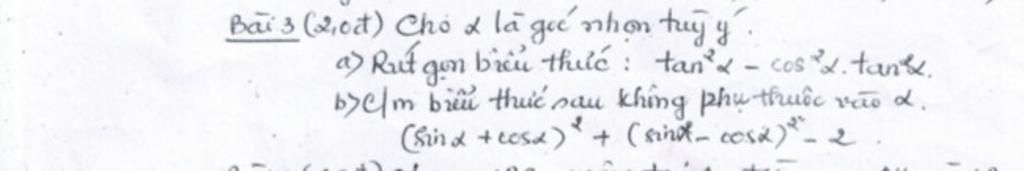 Bài 3 (2,0đ) Cho α là góc nhọn tuỳ ý.
a) Rút gọn biểu thức : tan²α - cos²α.tan²α.
b) c/m biểu thức sau không phụ thuộc vào α.
(sinα + cosα)² + (sinα - cosα)² - 2.